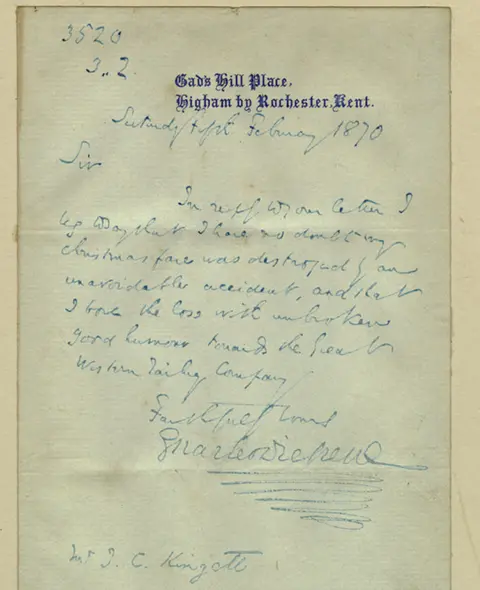 3520
3..2.
Gad's Hill Place,
Higham by Rochester, Kent.
Saturday fifth February 1870
Sir
In reply to your letter I
beg to say that I have no doubt my
Christmas fare was destroyed by an
unavoidable accident, and that
I bore the loss with unbroken
good humour towards the Great
Western Railway Company
Faithfully Yours
Charles Dickens
Mr J. C. Kingett